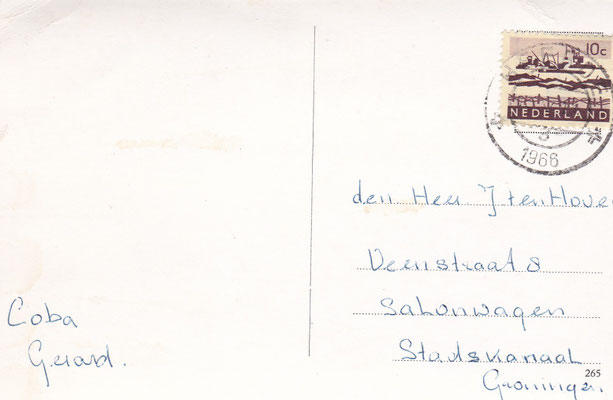 10c
NEDERLAND
1966
den Heer J ten Hove
Veenstraat 8
Salonwagen
Stadskanaal
265
Groningen.
Coba
Gerard.